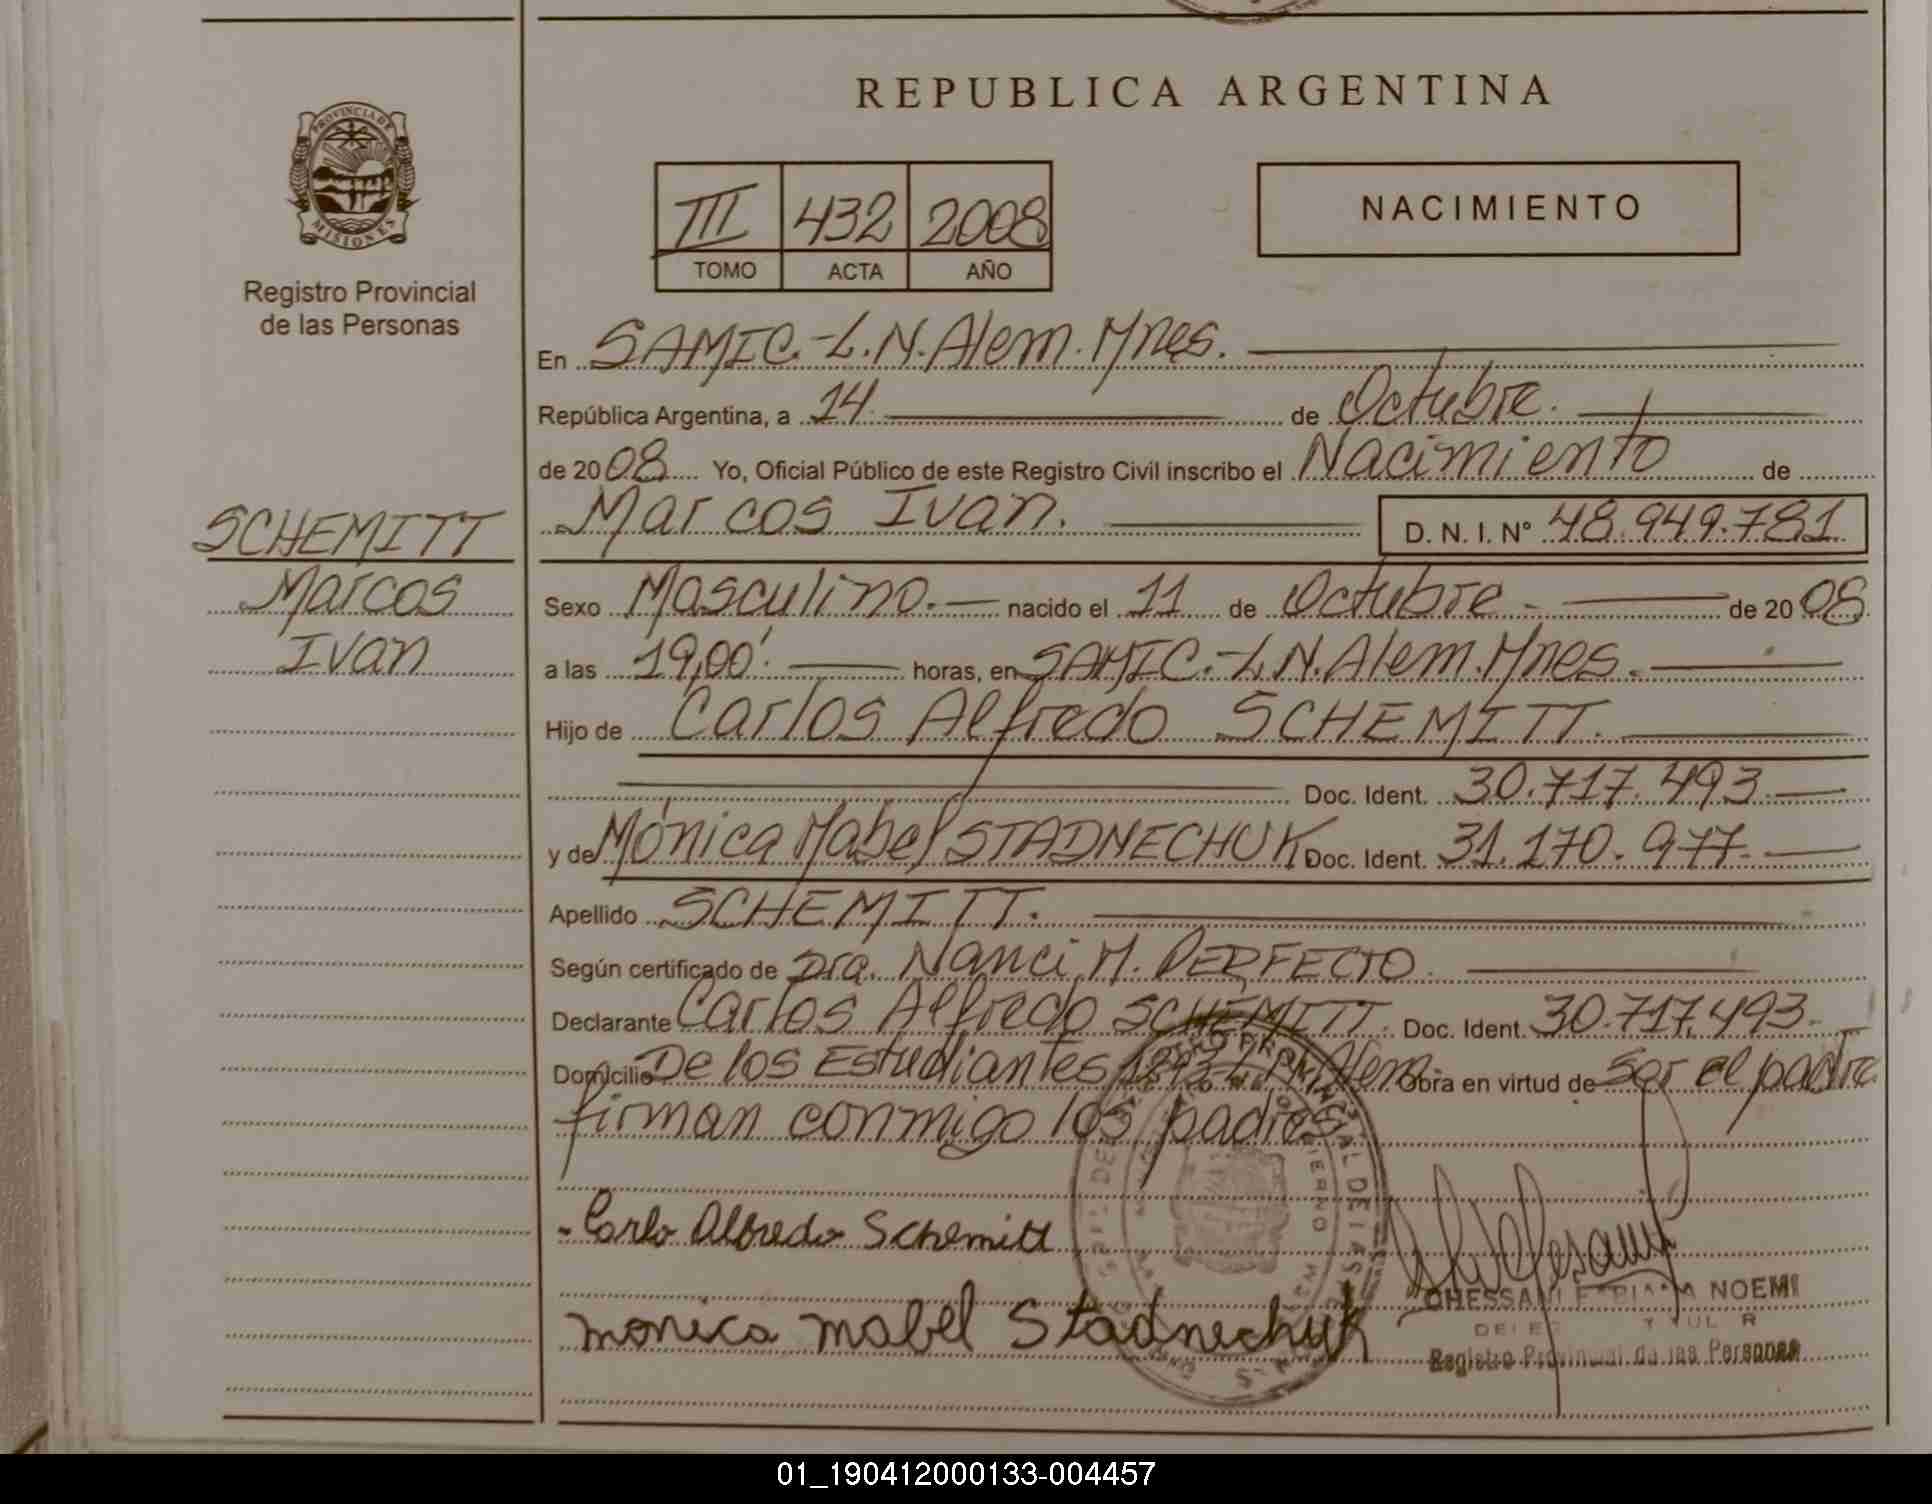 REPUBLICA ARGENTINA
PROVINCIA DE
MISIONES
Registro Provincial
de las Personas
III 432 2008
TOMO ACTA AÑO
NACIMIENTO
En SAMIC.-L.N.Alem.Mnes.
República Argentina, a 14. de Octubre.
de 2008 Yo, Oficial Público de este Registro Civil inscribo el Nacimiento de
Marcos Ivan. D. N. I. N° 48.949.781
SCHEMITT
Marcos
Ivan
Sexo Masculino.- nacido el 11 de Octubre - de 2008
a las 19,00'. horas, en SAMIC.-L.N.Alem.Mnes.
Hijo de Carlos Alfredo SCHEMITT.
Doc. Ident. 30.717.493
y de Mónica Mabel STADNECHUK Doc. Ident. 31.170.977.
Apellido SCHEMITT.
Según certificado de Dra. Nanci M. PERFECTO.
Declarante Carlos Alfredo SCHEMITT. Doc. Ident. 30.717.493.
Domicilio De los Estudiantes Alem. Obra en virtud de Ser el padre
firman conmigo los padres
- Carlo Alfredo Schemitt
monica mabel Stadnechuk
NOEMI
Registro Provincial de las Personas
01_190412000133-004457